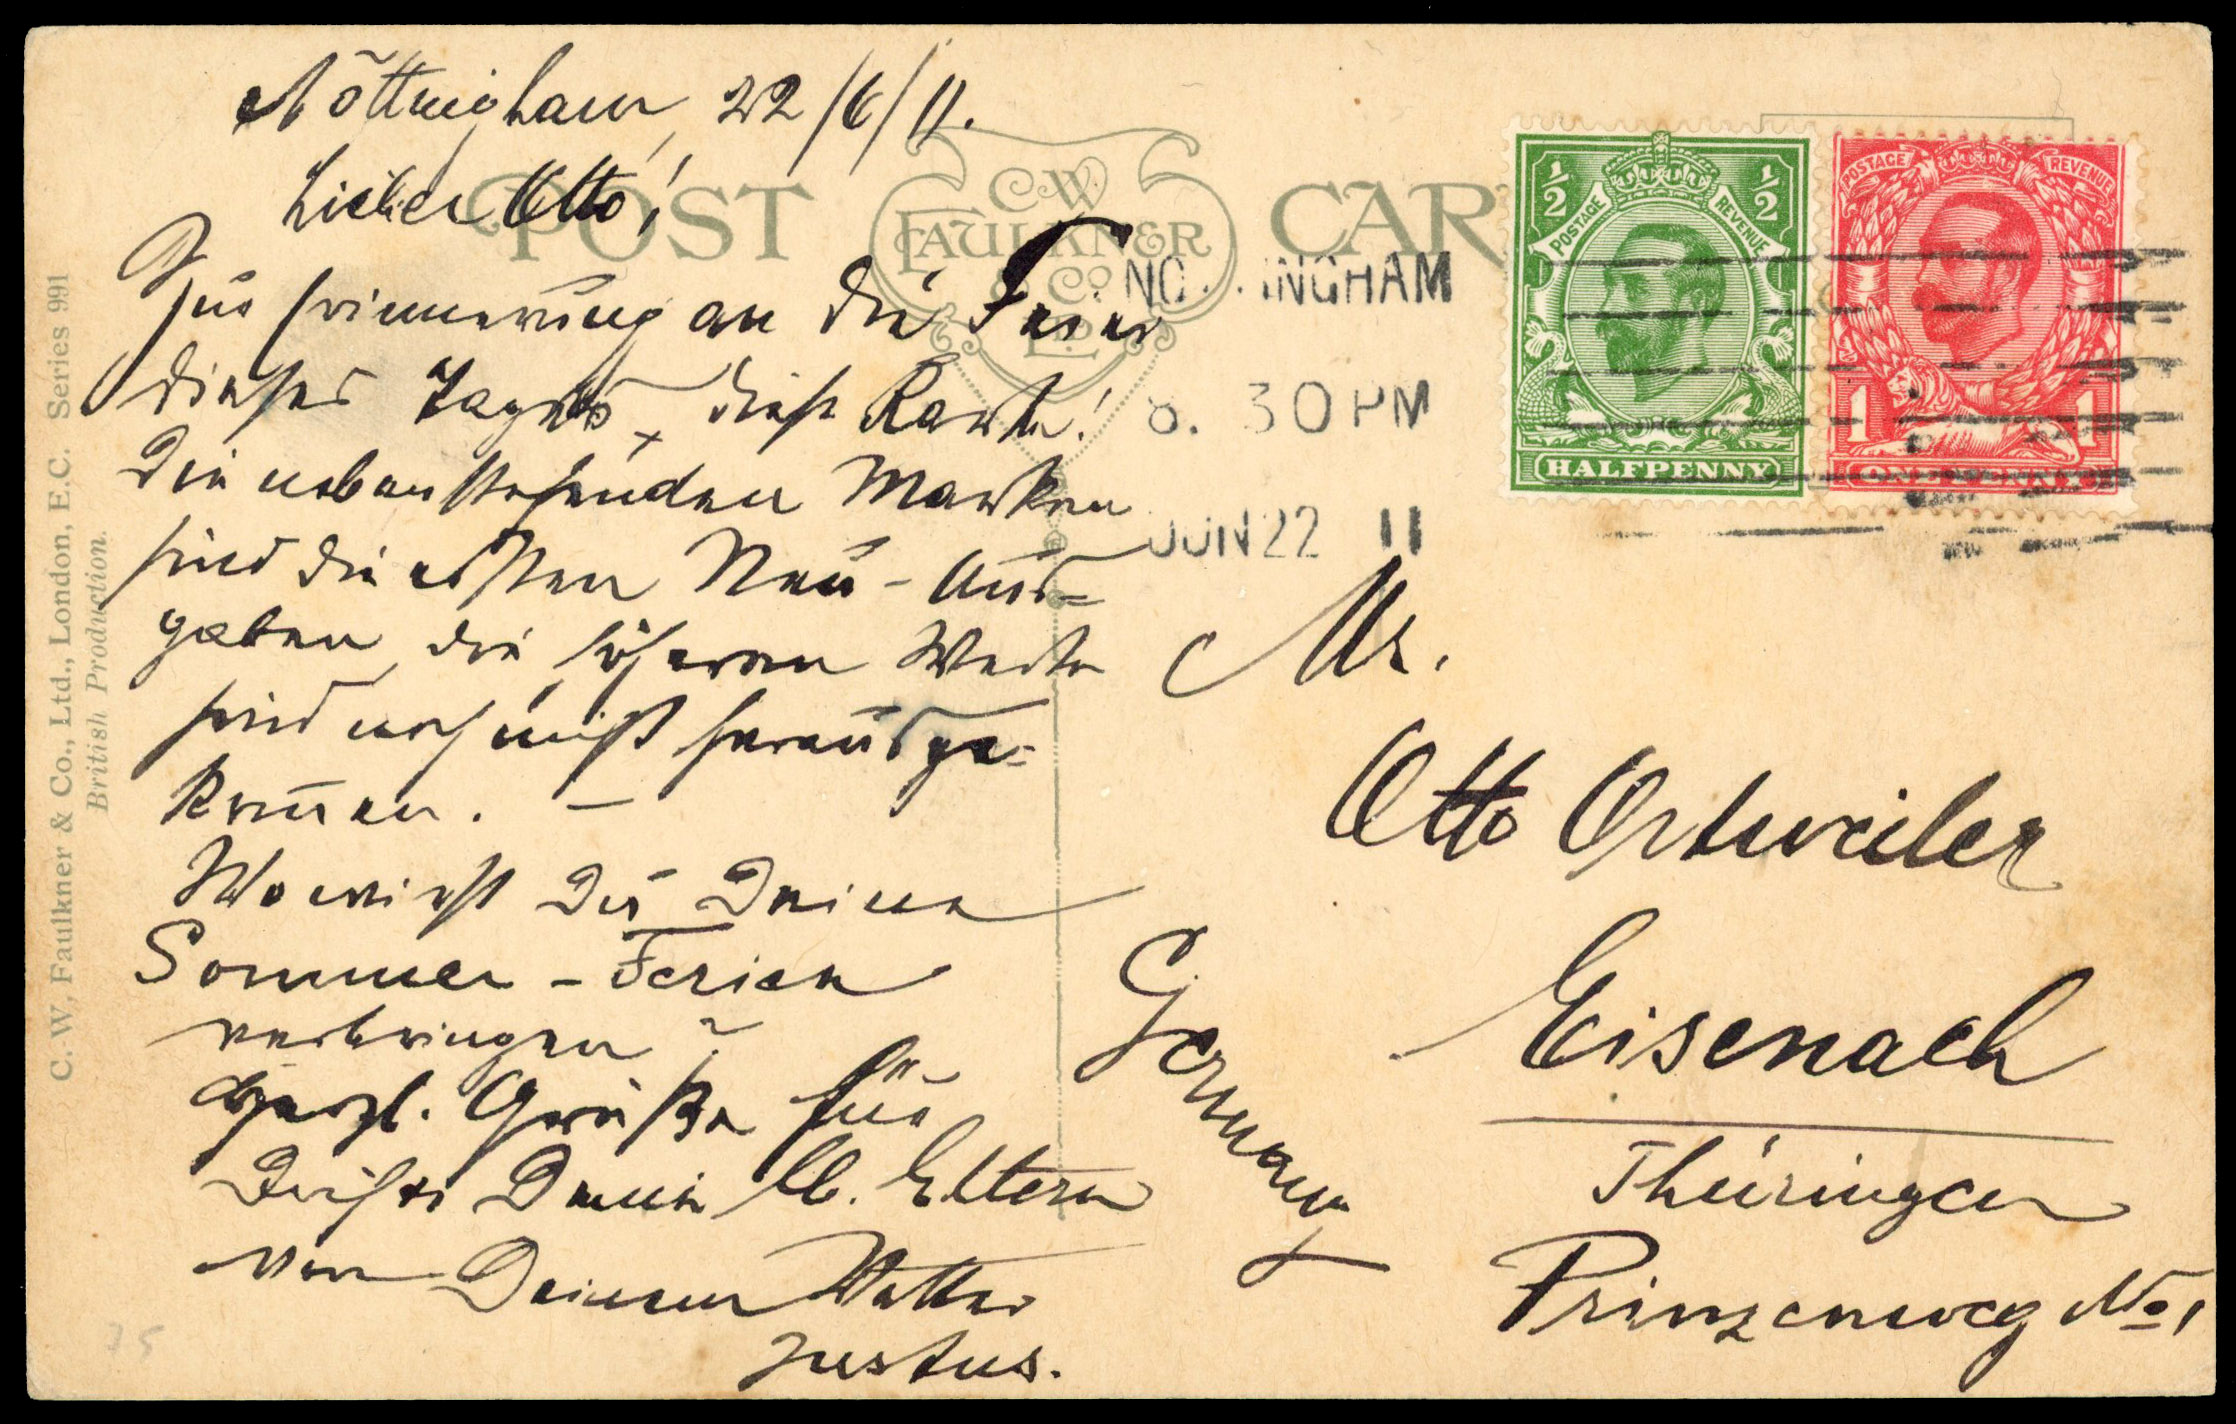 Nottingham, 22/6/11.
Lieber Otto!
Zur Erinnerung an die Feier
dieses Tages, diese Karte!
Die nebenstehenden Marken
sind die ersten Neu-Aus=
gaben, die höheren Werte
sind noch nicht herausge=
kommen. —
Wo wirst Du Deine
Sommer-Ferien
verbringen?
Herzl. Grüße für
Dich & Deine lb. Eltern
von Deinem Vetter
Justus.
POST CARD
C.W.
FAULKNER
& Co.
LTD.
C. W. Faulkner & Co., Ltd., London, E.C. Series 991
British Production.
NOTTINGHAM
8. 30 PM
JUN 22 11
1/2 1/2
POSTAGE REVENUE
HALFPENNY
POSTAGE REVENUE
1 1
ONE PENNY
Mr.
Otto Ortweiler
Eisenach
Thüringen
Prinzenweg No 1
Germany
75